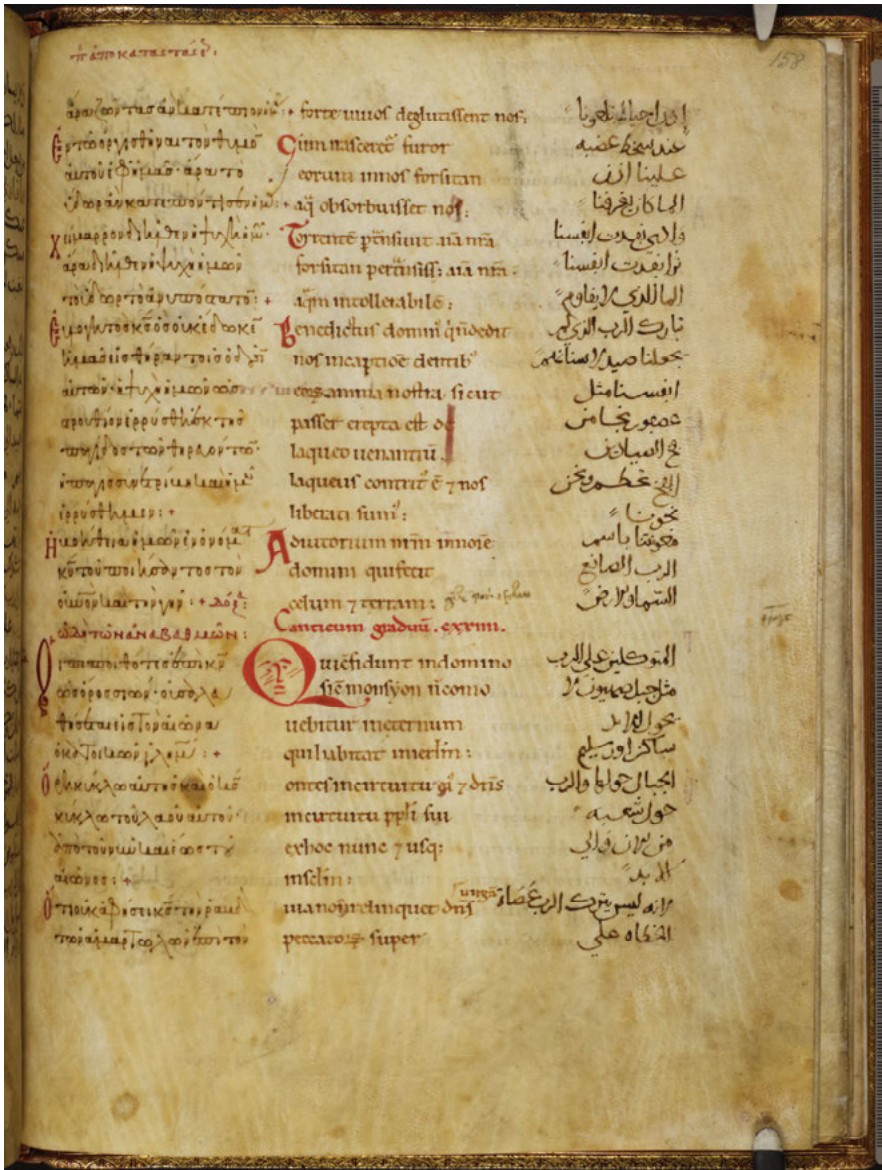 158
ἄρα ζῶντας ἂν κατέπιον ἡμᾶς
Ἐν τῶ ὀργισθῆναι τὸν θυμὸν
αὐτοῦ ἐφ ἡμᾶς· ἄρα τὸ
ὕδωρ ἂν κατεπόντισεν ἡμᾶς
Χείμαρρον διῆλθεν ἡ ψυχὴ ἡμῶν
ἄρα διῆλθεν ἡ ψυχὴ ἡμῶν
τὸ ὕδωρ τὸ ἀνυπόστατον
Εὐλογητὸς κσ ὃς οὐκ ἔδωκεν
ἡμᾶς εἰς θήραν τοῖς ὀδοῦσιν
αὐτῶν· ἡ ψυχὴ ἡμῶν ὡς
στρουθίον ἐρρύσθη ἐκ τῆς
παγίδος τῶν θηρευόντων
ἡ παγὶς συνετρίβη καὶ ἡμεῖς
ἐρρύσθημεν : +
Ἡ βοήθεια ἡμῶν ἐν ὀνόματι
κυ τοῦ ποιήσαντος τὸν
οὐνον καὶ τὴν γῆν : +
ὠδὴ τῶν ἀναβαθμῶν :
Οἱ πεποιθότες ἐπὶ κν
ὡς ὄρος σιών· οὐ σαλευ
θήσεται εἰς τὸν αἰῶνα
ὁ κατοικῶν ἱλημ : +
Ὄρη κύκλω αὐτῆς καὶ ὁ κς
κύκλω τοῦ λαοῦ αὐτοῦ·
ἀπὸ τοῦ νῦν καὶ ἕως τοῦ
αἰῶνος : +
Ὅτι οὐκ ἀφήσει κς τὴν ράβδον
τῶν ἁμαρτωλῶν ἐπὶ τὸν
forte uiuos deglutissent nos;
Cum nasceret furor
eorum in nos forsitan
aq obsorbuisset nos:
Torrente ptnsiuit aia nra
forsitan pertnsiss; aia nra .
aqm intollerabile :
Benedictus domin qi n dedit
nos in captioe dentib
eos anima nostra sicut
passer erepta est de
laqueo uenantiu .
laqueus contrit e ⁊ nos
liberati sum :
Adiutorium nrm in noie
domini qui fecit
celum ⁊ terram :
Canticum graduu . cxxiiii .
Qui cfidunt in domino
sic mons syon n como
uebitur in eternum
qui habitat in ierlm :
ontes in circuitu ei ⁊ dns
in circuitu ppli sui
ex hoc nunc ⁊ usq;
in sclm :
uia non relinquet dns uirga
peccatoꝝ super
اذا لاحيا يبلعونا
عند سخط غضبه
علينا اذن
الما كان يغرقنا
وادي نفدت انفسنا
ترا نفدت انفسنا
الما الذي لا يقاوم
تبارك الرب الذي لم
يجعلنا صيد لاسنانهم
انفسنا مثل
عصفور نجا من
فخ الصيادين
الفخ تحطم ونحن
نجونا
معونتنا باسم
الرب الصانع
السما والارض
المتوكلين علي الرب
مثل جبل صهيون لا
يحول للابد
ساكن اورسليم
الجبال حولها والرب
حول شعبه
من الان والي
الابد
لانه ليس يترك الرب عصاة
الخطاه علي